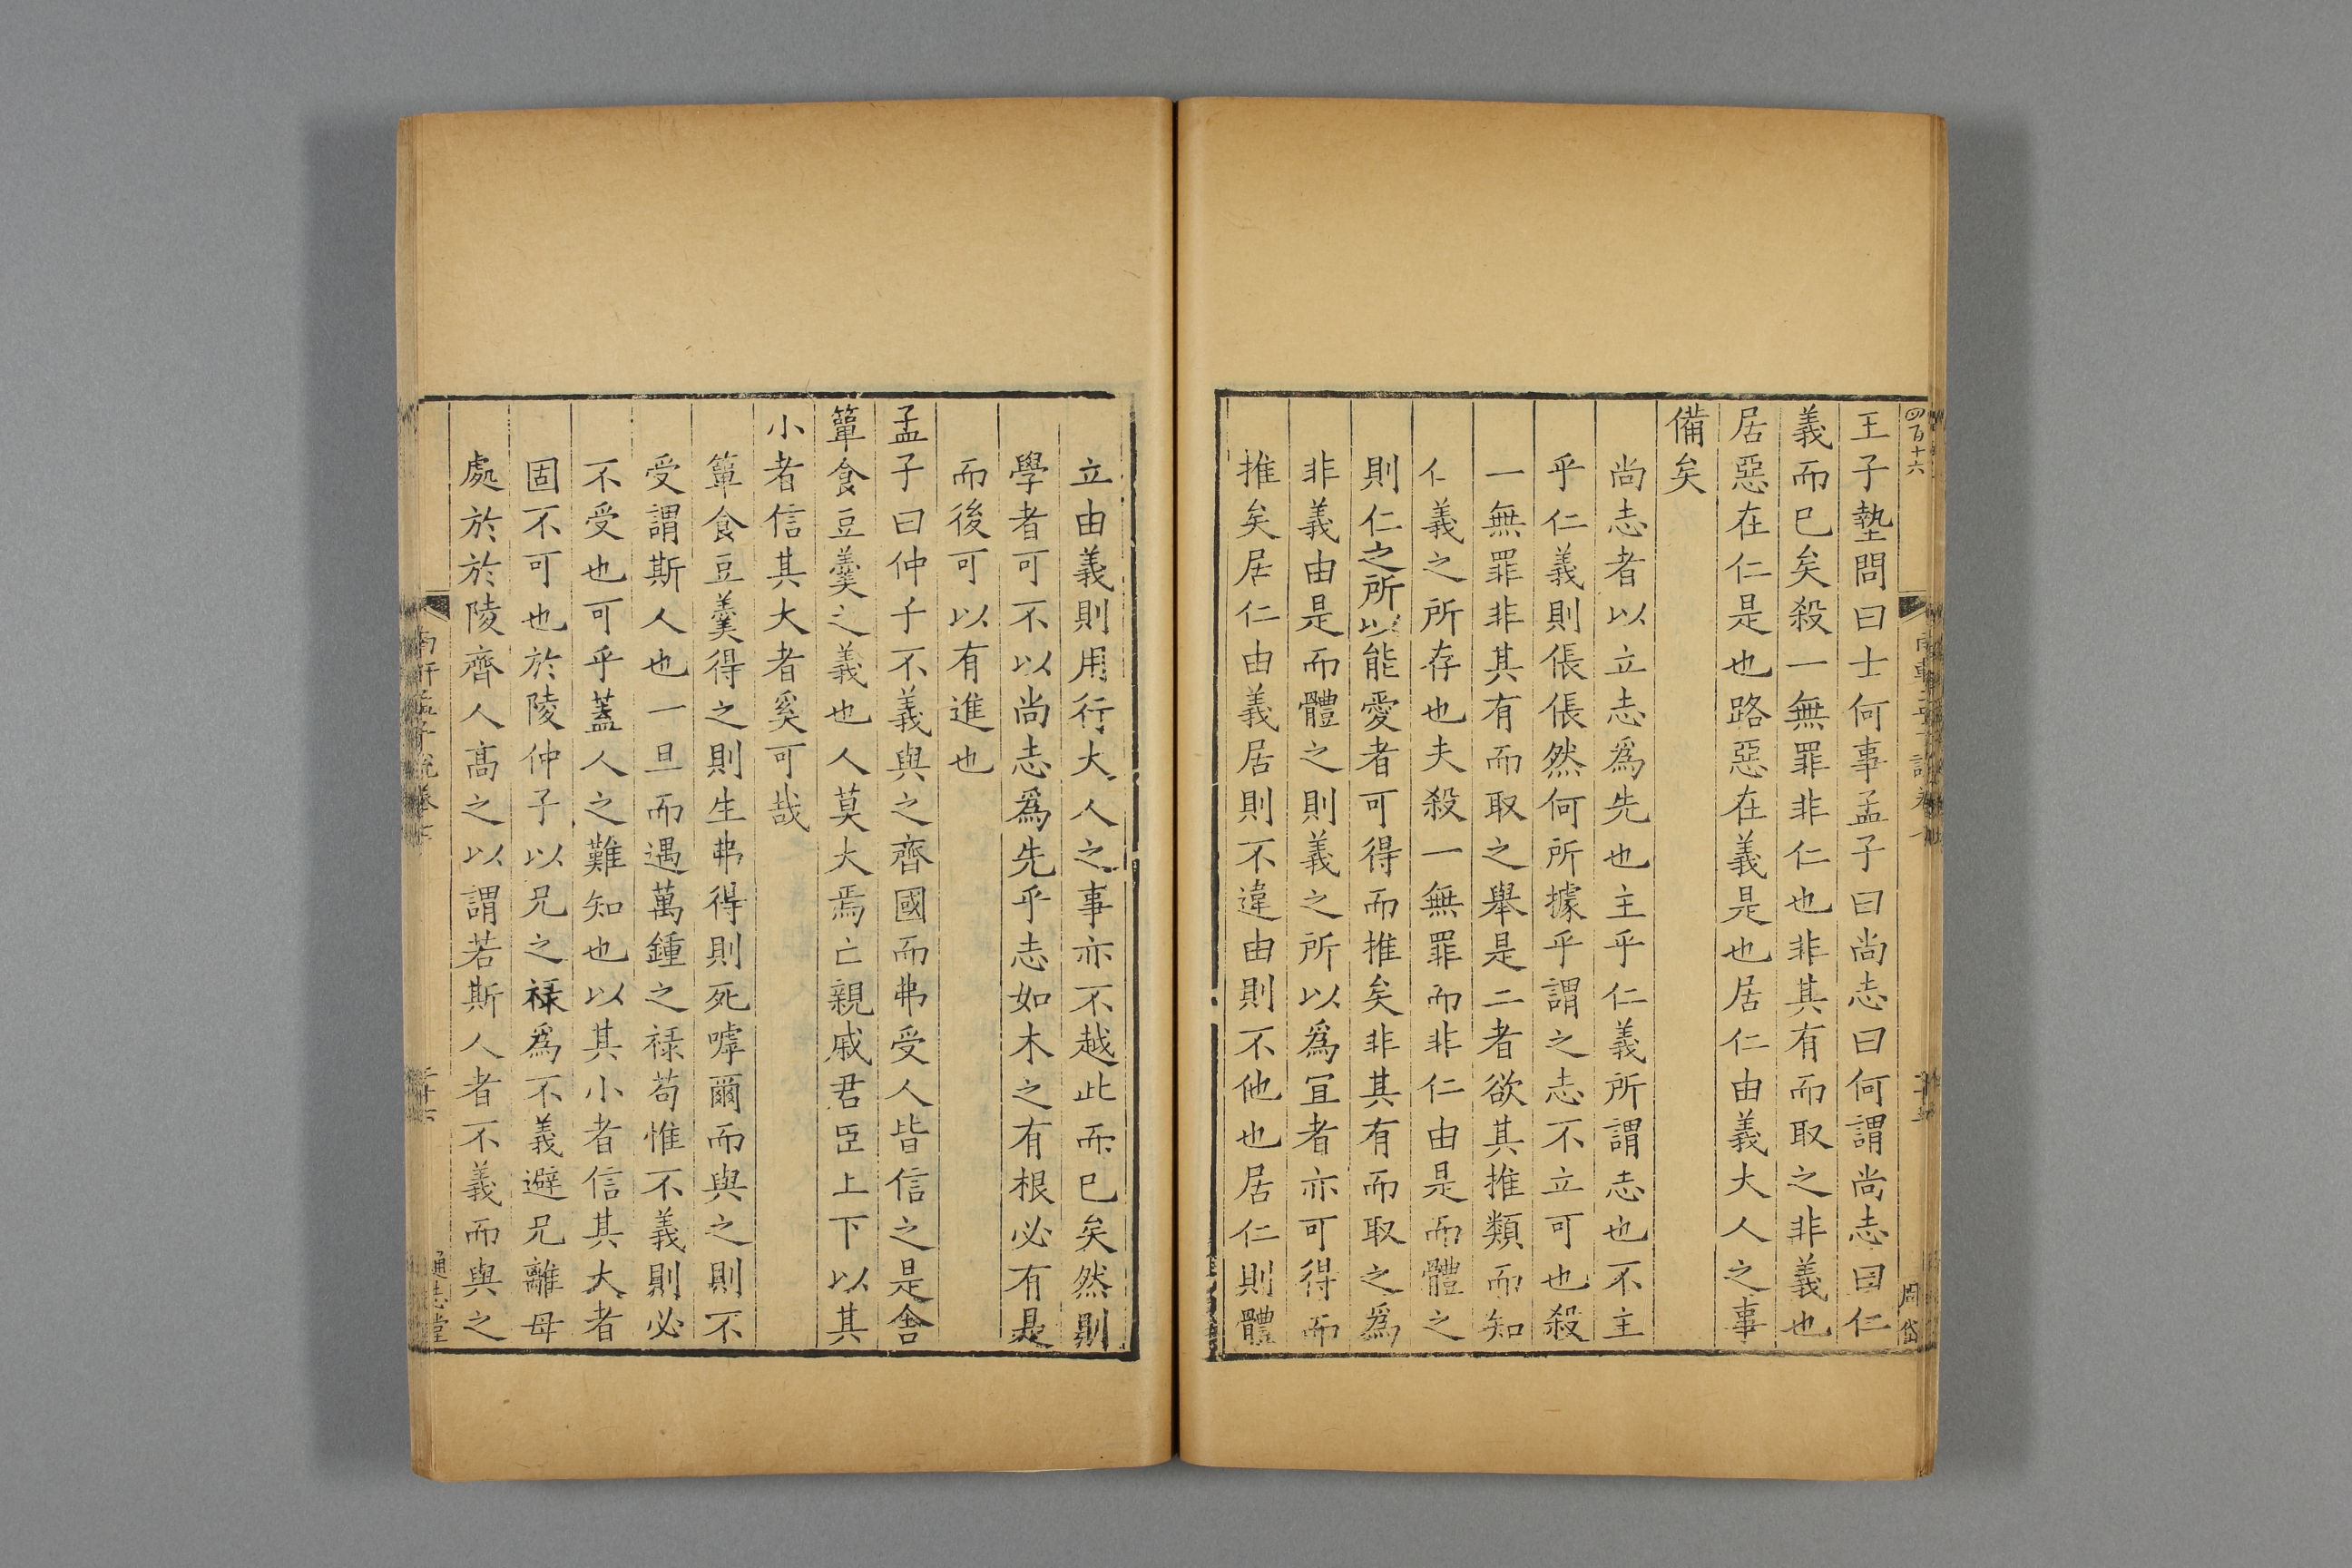 四百十六
王子墊問曰士何事孟子曰尚志曰何謂尚志曰仁
義而已矣殺一無罪非仁也非其有而取之非義也
居惡在仁是也路惡在義是也居仁由義大人之事
備矣
尚志者以立志爲先也主乎仁義所謂志也不主
乎仁義則倀倀然何所據乎謂之志不立可也殺
一無罪非其有而取之舉是二者欲其推類而知
仁義之所存也夫殺一無罪而非仁由是而體之
則仁之所以能愛者可得而推矣非其有而取之爲
非義由是而體之則義之所以爲宜者亦可得而
推矣居仁由義居則不違由則不他也居仁則體
周岱
立由義則用行大人之事亦不越此而已矣然則
學者可不以尚志爲先乎志如木之有根必有是
而後可以有進也
孟子曰仲子不義與之齊國而弗受人皆信之是舍
簞食豆羹之義也人莫大焉亡親戚君臣上下以其
小者信其大者奚可哉
簞食豆羹得之則生弗得則死嘑爾而與之則不
受謂斯人也一旦而遇萬鍾之祿苟惟不義則必
不受也可乎蓋人之難知也以其小者信其大者
固不可也於陵仲子以兄之祿爲不義避兄離母
處於於陵齊人高之以謂若斯人者不義而與之
南軒孟子說卷七
二十六
通志堂